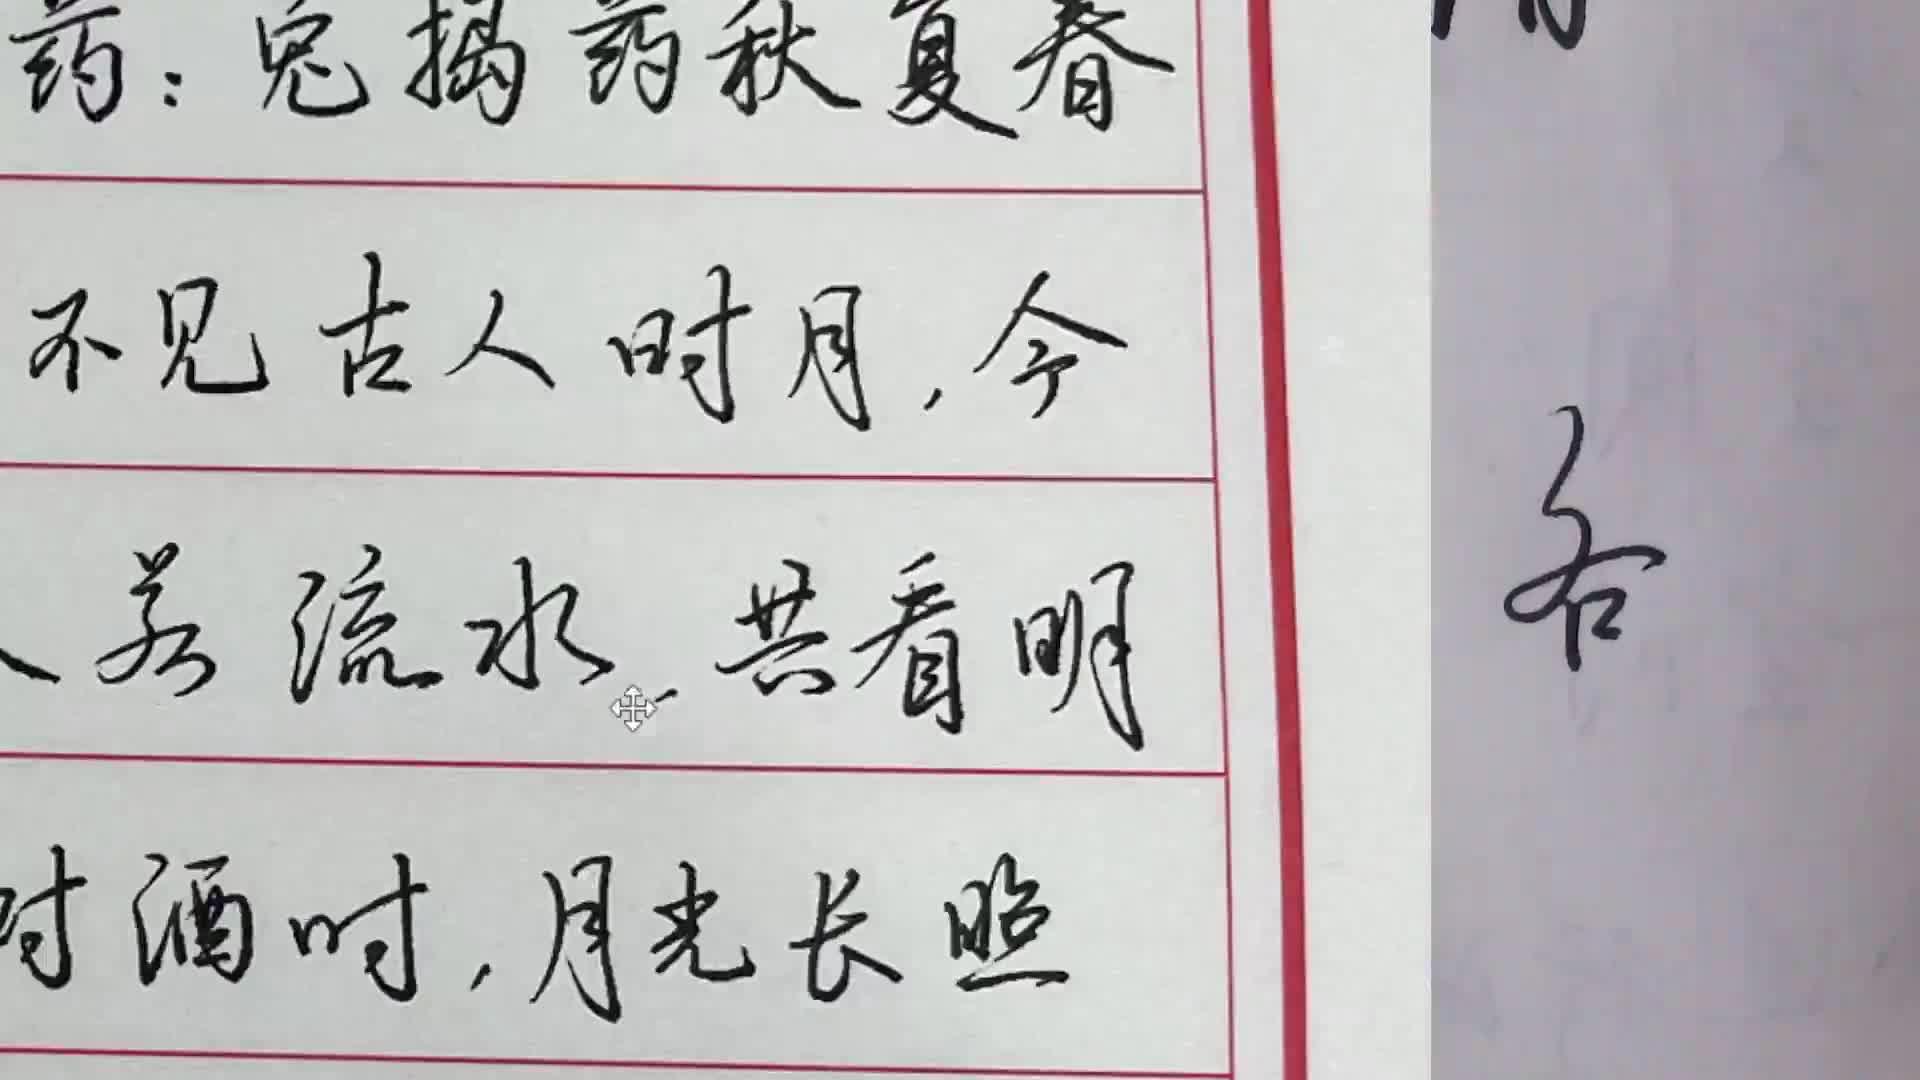 药：兔捣药秋复春
不见古人时月，今
若流水，共看明
对酒时，月光长照
各